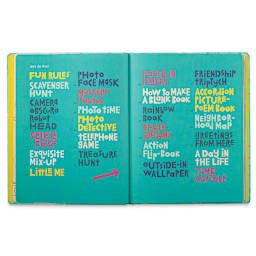 FUN RULES
SCAVENGER
HUNT
CAMERA
OBSCURA
ROBOT
HEAD
EXQUISITE
MIX-UP
LITTLE ME
PHOTO
FACE MASK
PHOTO TIME
PHOTO
DETECTIVE
TELEPHONE
GAME
TREASURE
HUNT
HOW TO MAKE
A BLANK BOOK
RAINBOW
BOOK
ACTION
FLIP-BOOK
OUTSIDE-IN
WALLPAPER
FRIENDSHIP
TRIPTYCH
ACCORDION
PICTURE-
POEM BOOK
NEIGHBOR-
HOOD MAP
GREETINGS
FROM HERE
A DAY IN
THE LIFE
TIME
CAPSULE